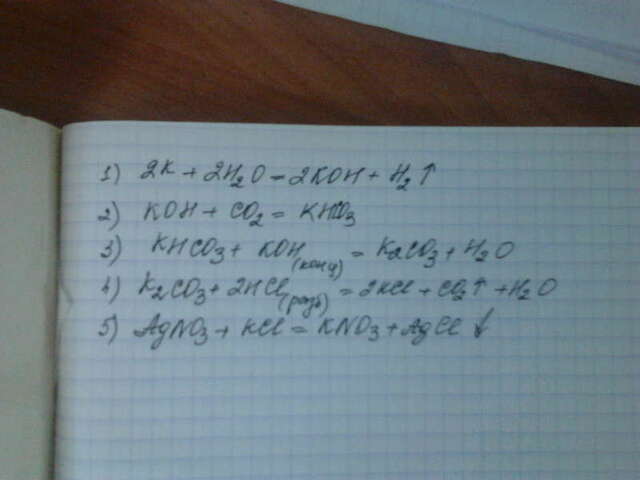 1) 2K + 2H₂O = 2KOH + H₂↑
2) KOH + CO₂ = KHCO₃
3) KHCO₃ + KOH (конц) = K₂CO₃ + H₂O
4) K₂CO₃ + 2HCl (разб) = 2KCl + CO₂↑ + H₂O
5) AgNO₃ + KCl = KNO₃ + AgCl ↓